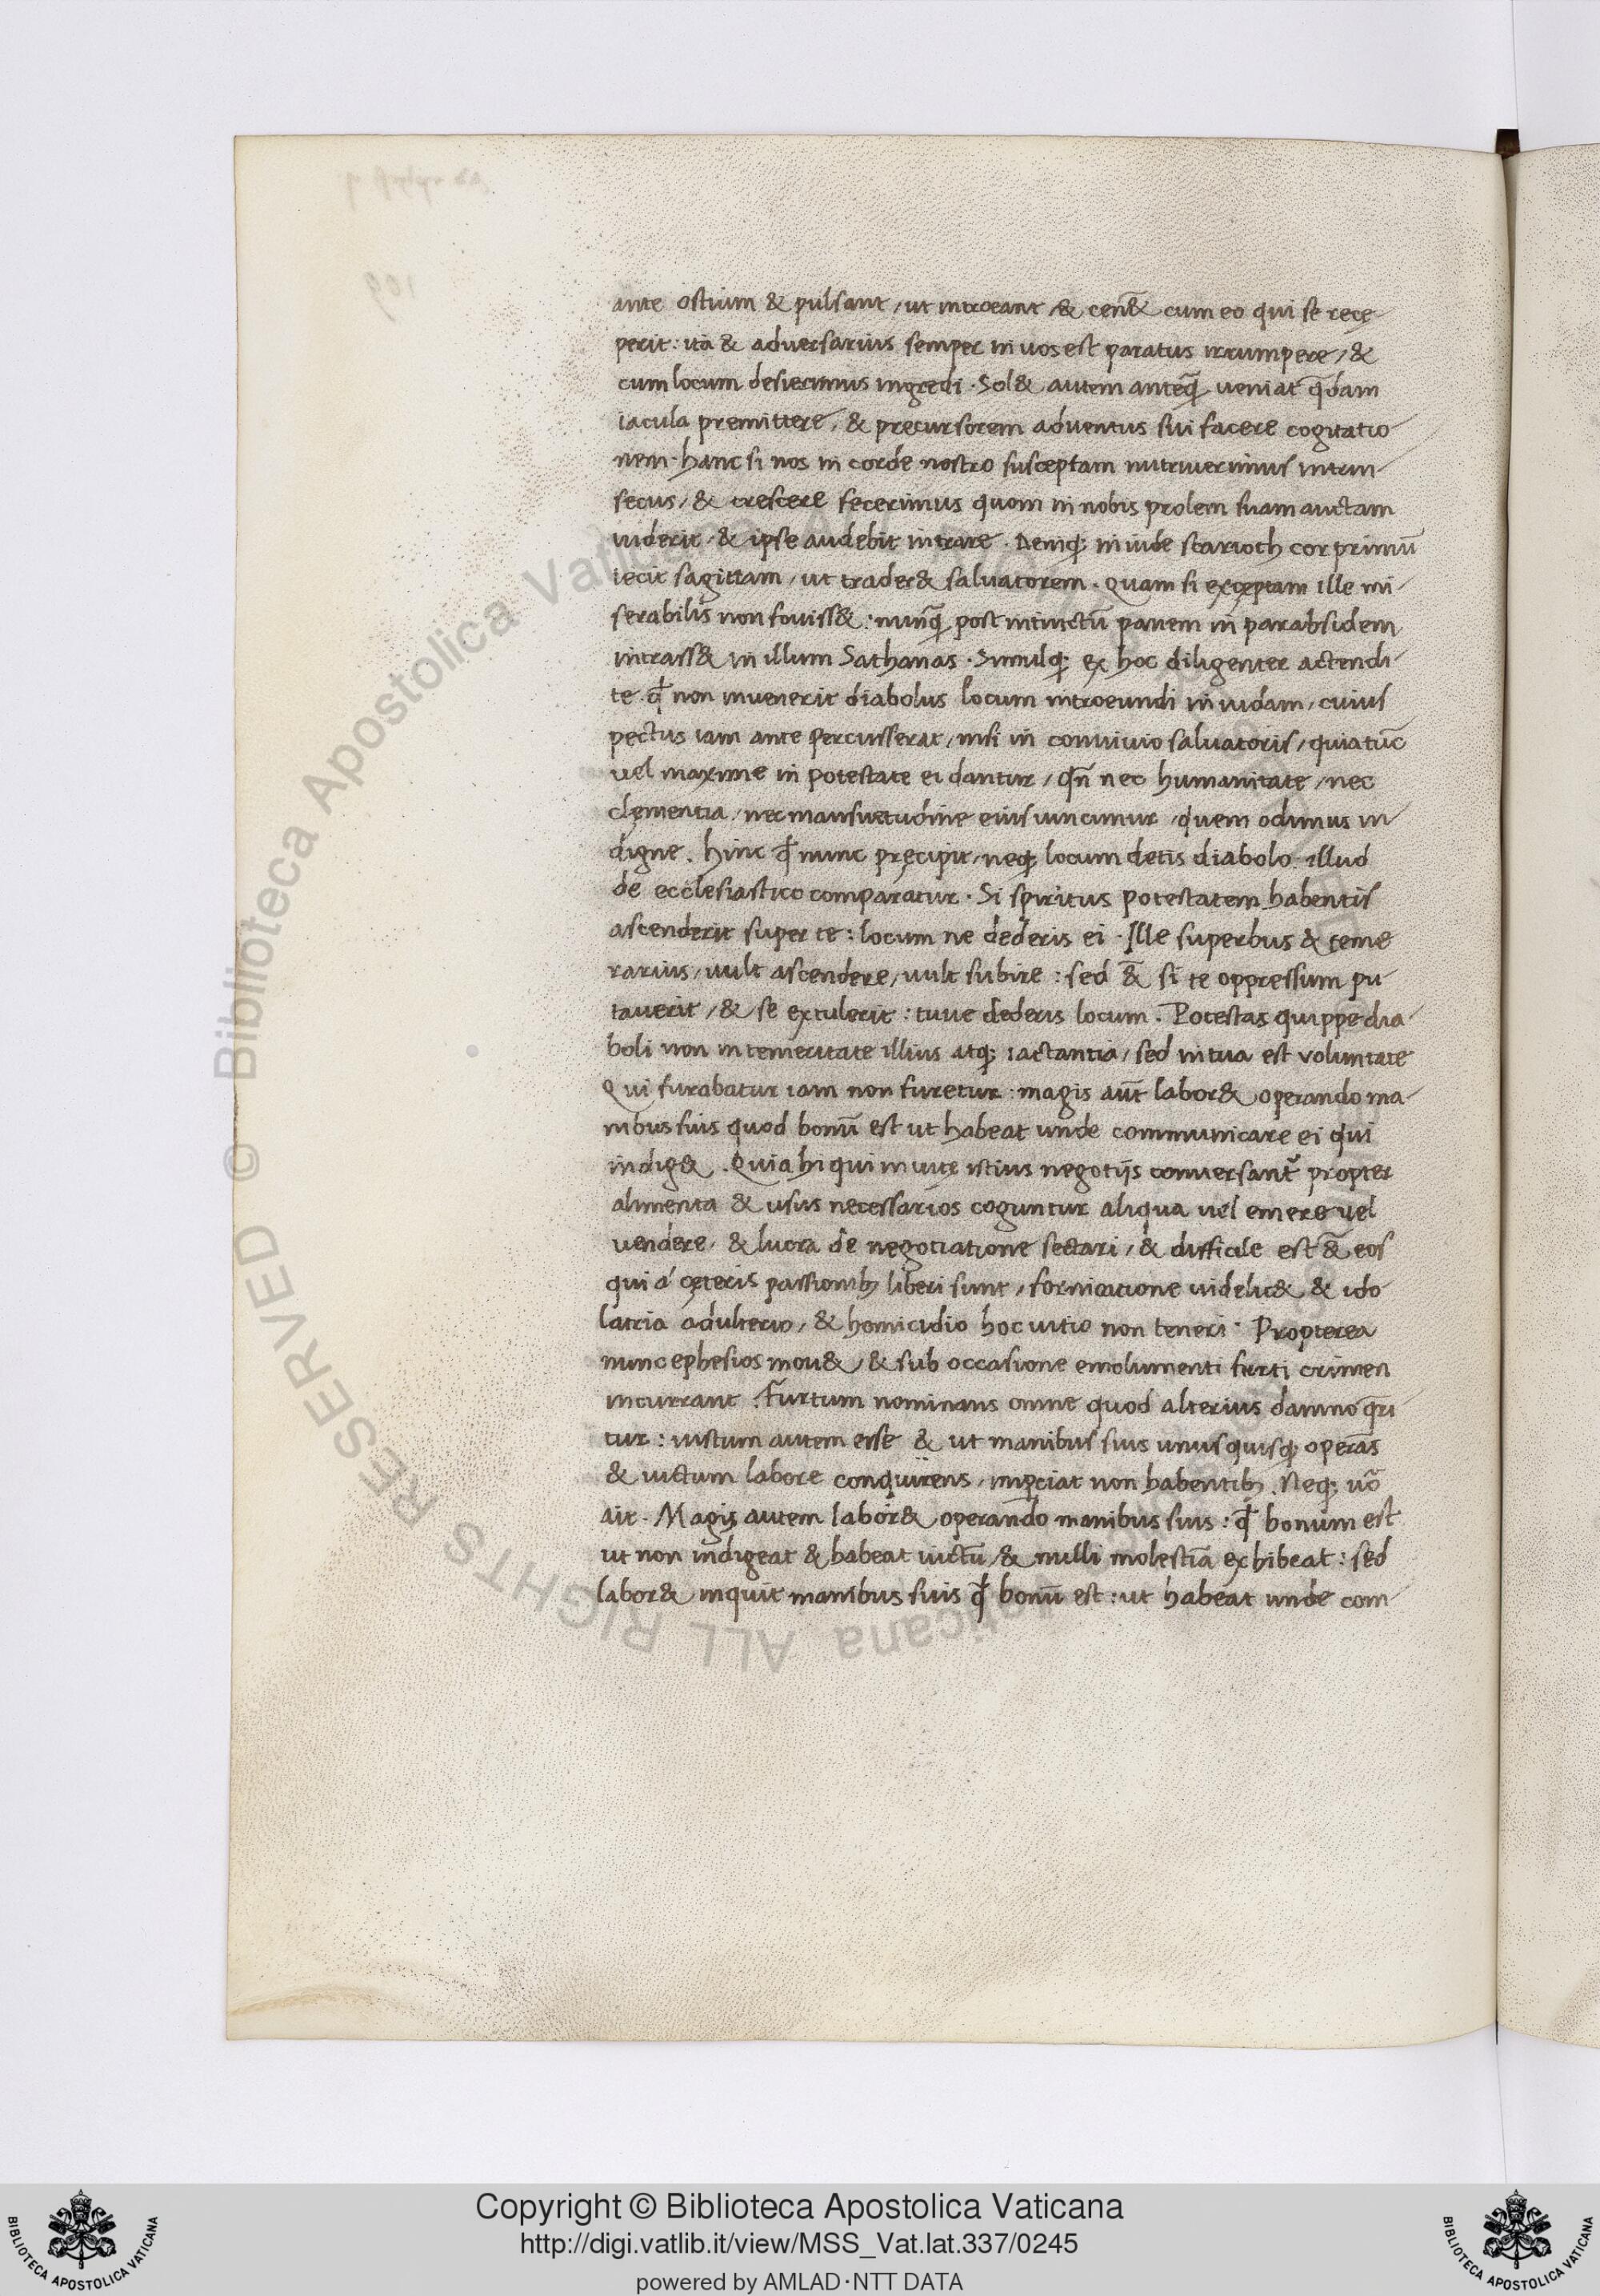 ante ostium & pulsant, ut introeant, & cen̄& cum eo qui se rece
perit: ita & adversarius semper in vos est paratus irrumpere, &
cum locum desierimus ingredi. Sol& autem anteq̄ veniat q̄dam
iacula premittere, & precursorem adventus sui facere cogitatio
nem. hanc si nos in corde nostro susceptam nutriverimus intrin
secus, & crescere fecerimus quom in nobis prolem suam auctam
viderit, & ipse audebit intrare. Deniq; in iude scarioth cor primū
iecit sagittam, ut trader& salvatorem. Quam si exceptam ille mi
serabilis non foviss&: nunq̄ post intinctū panem in parabsidem
intrass& in illum Sathanas. Simulq; ex hoc diligenter actendi
te q̄ non invenerit diabolus locum introeundi in iudam, cuius
pectus iam ante percusserat, nisi in convivio salvatoris, quia tūc
vel maxime in potestate ei dantur, qn̄ nec humanitate, nec
clementia, nec mansuetudine eius vincimur, quem odimus in
digne. hinc q̄ nunc precipit, neq; locum detis diabolo. illud
de ecclesiastico comparatur. Si spiritus potestatem habentis
ascenderit super te: locum ne dederis ei. Ille superbus & teme
rarius, vult ascendere, vult subire: sed &̄ si te oppressum pu
taverit, & se extulerit: tu ne dederis locum. Potestas quippe dia
boli non in temeritate illius atq; iactantia, sed in tua est voluntate
Qui furabatur iam non furetur: magis aūt labor& operando ma
nibus suis quod bonū est ut habeat unde communicare ei qui
indig&. Quia hi qui in vite istius negotijs conversant propter
alimenta & usus necessarios coguntur aliqua vel emere vel
vendere, & lucra de negociatione sectari, & difficile est &̄ eos
qui á ceteris passionib; liberi sunt, fornicatione videlic& & ido
latria adulterio, & homicidio hoc vitio non teneri. Propterea
nunc ephesios mov&, & sub occasione emolumenti furti crimen
incurrant. Furtum nominans omne quod alterius damno q̄ri
tur: iustum autem esse & ut manibus suis unusquisq; operās
& victum labore conquirens, imꝑciat non habentib;. Neq; vō
ait. Magis autem labor& operando manibus suis: q̄ bonum est
ut non indigeat & habeat victū, & nulli molestiā exhibeat: sed
labor& inquit manibus suis q̄ bonū est: ut habeat unde com
© Biblioteca Apostolica Vaticana ALL RIGHTS RESERVED
Copyright © Biblioteca Apostolica Vaticana
http://digi.vatlib.it/view/MSS_Vat.lat.337/0245
powered by AMLAD·NTT DATA
BIBLIOTECA APOSTOLICA VATICANA
BIBLIOTECA APOSTOLICA VATICANA